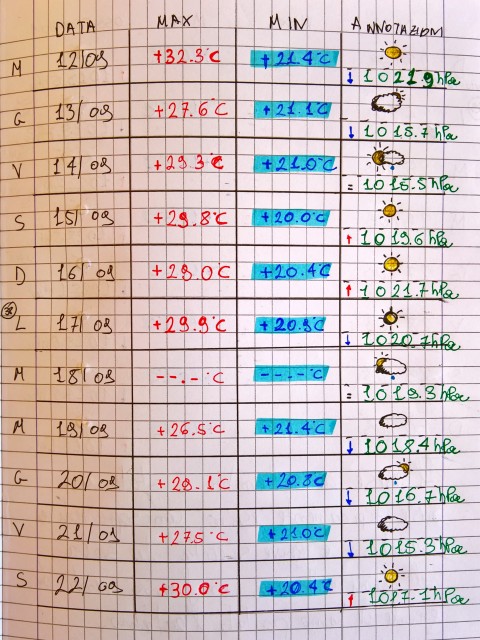 DATA MAX MIN ANNOTAZIONI
M 12/09 +32.3°C +21.4°C ↓ 1021.9 hPa
G 13/09 +27.6°C +21.1°C ↓ 1015.7 hPa
V 14/09 +29.3°C +21.0°C = 1015.5 hPa
S 15/09 +29.8°C +20.0°C ↑ 1019.6 hPa
D 16/09 +29.0°C +20.4°C ↑ 1021.7 hPa
L 17/09 +29.9°C +20.9°C ↓ 1020.7 hPa
M 18/09 --.-°C --.-°C = 1019.3 hPa
M 19/09 +26.5°C +21.4°C ↓ 1018.4 hPa
G 20/09 +29.1°C +20.8°C ↓ 1016.7 hPa
V 21/09 +27.5°C +21.0°C ↓ 1015.3 hPa
S 22/09 +30.0°C +20.4°C ↑ 1017.1 hPa